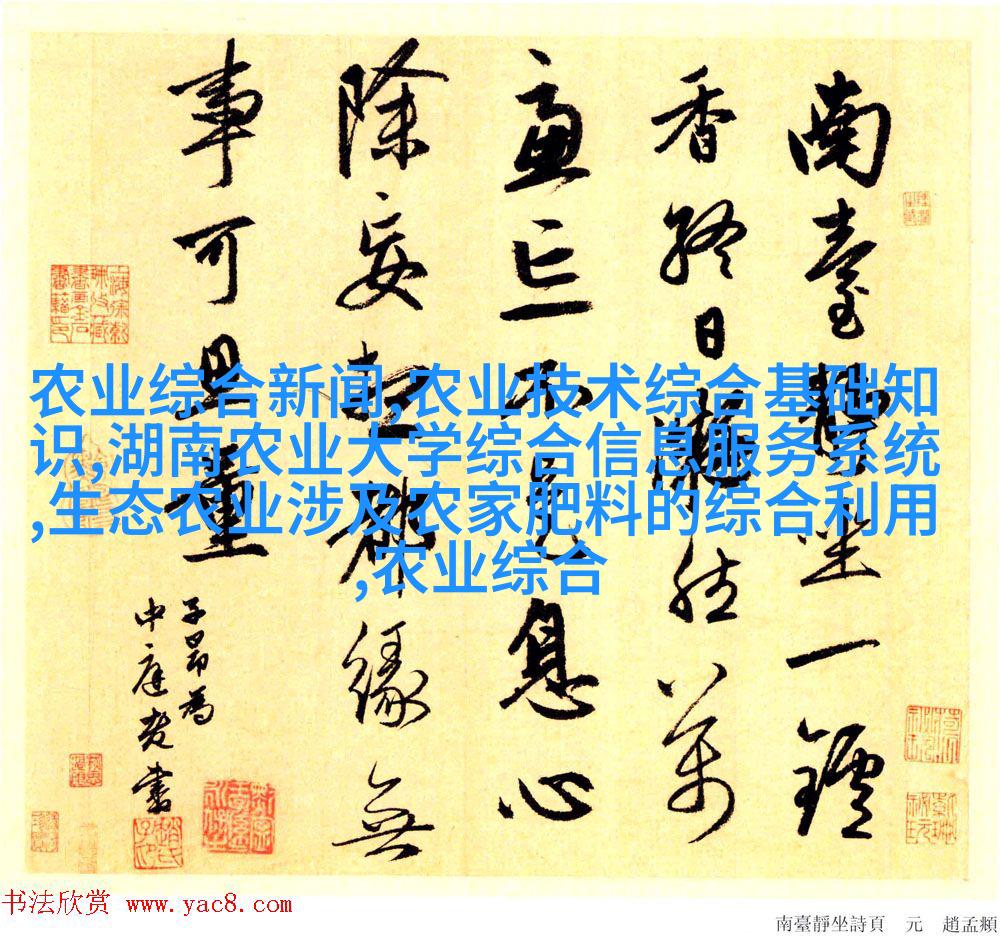 南臺靜坐一鑪
香終日凝然萬
慮亡不是息心
除妄想都緣無
事可思量
子昂為
中庭老書
农业综合新闻,农业技术综合基础知
识,湖南农业大学综合信息服务系统
,生态农业涉及农家肥料的综合利用
,农业综合
书法欣赏 www.yac8.com
南臺靜坐詩頁 元 趙孟頫